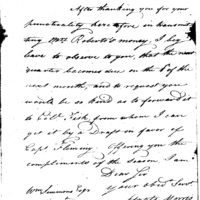 After thanking you for your
punctuality heretofore in transmit
ting Mrs Roberts's money, I beg
leave to observe to you, that the next
quarter becomes due on the 1 of the
next month, and to request you
would be so kind as to forward it
to Coll. Fish from whom I can
get it by a Draft in favor of
Capt Fleming Offering you the
compliments of the season I am
Dear Sir
Wm Simmons Esqr your obt Servt
Morris